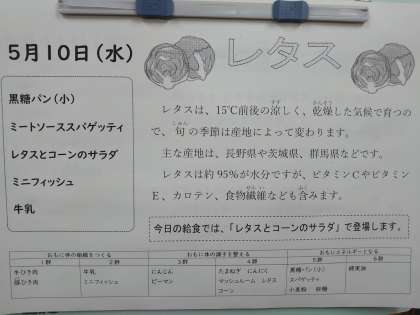 5月10日(水)
レタス
黒糖パン(小)
ミートソーススパゲッティ
レタスとコーンのサラダ
ミニフィッシュ
牛乳
レタスは、15℃前後の涼しく、乾燥した気候で育つの
で、旬の季節は産地によって変わります。
主な産地は、長野県や茨城県、群馬県などです。
レタスは約95%が水分ですが、ビタミンCやビタミン
E、カロテン、食物繊維なども含みます。
今日の給食では、「レタスとコーンのサラダ」で登場します。
おもに体の組織をつくる
おもに体の調子を整える
おもにエネルギーとなる
1群 2群 3群 4群 5群 6群
牛ひき肉 牛乳 にんじん たまねぎ にんにく 黒糖パン(小)
豚ひき肉 ミニフィッシュ ピーマン マッシュルーム レタス スパゲティ
コーン 小麦粉 砂糖